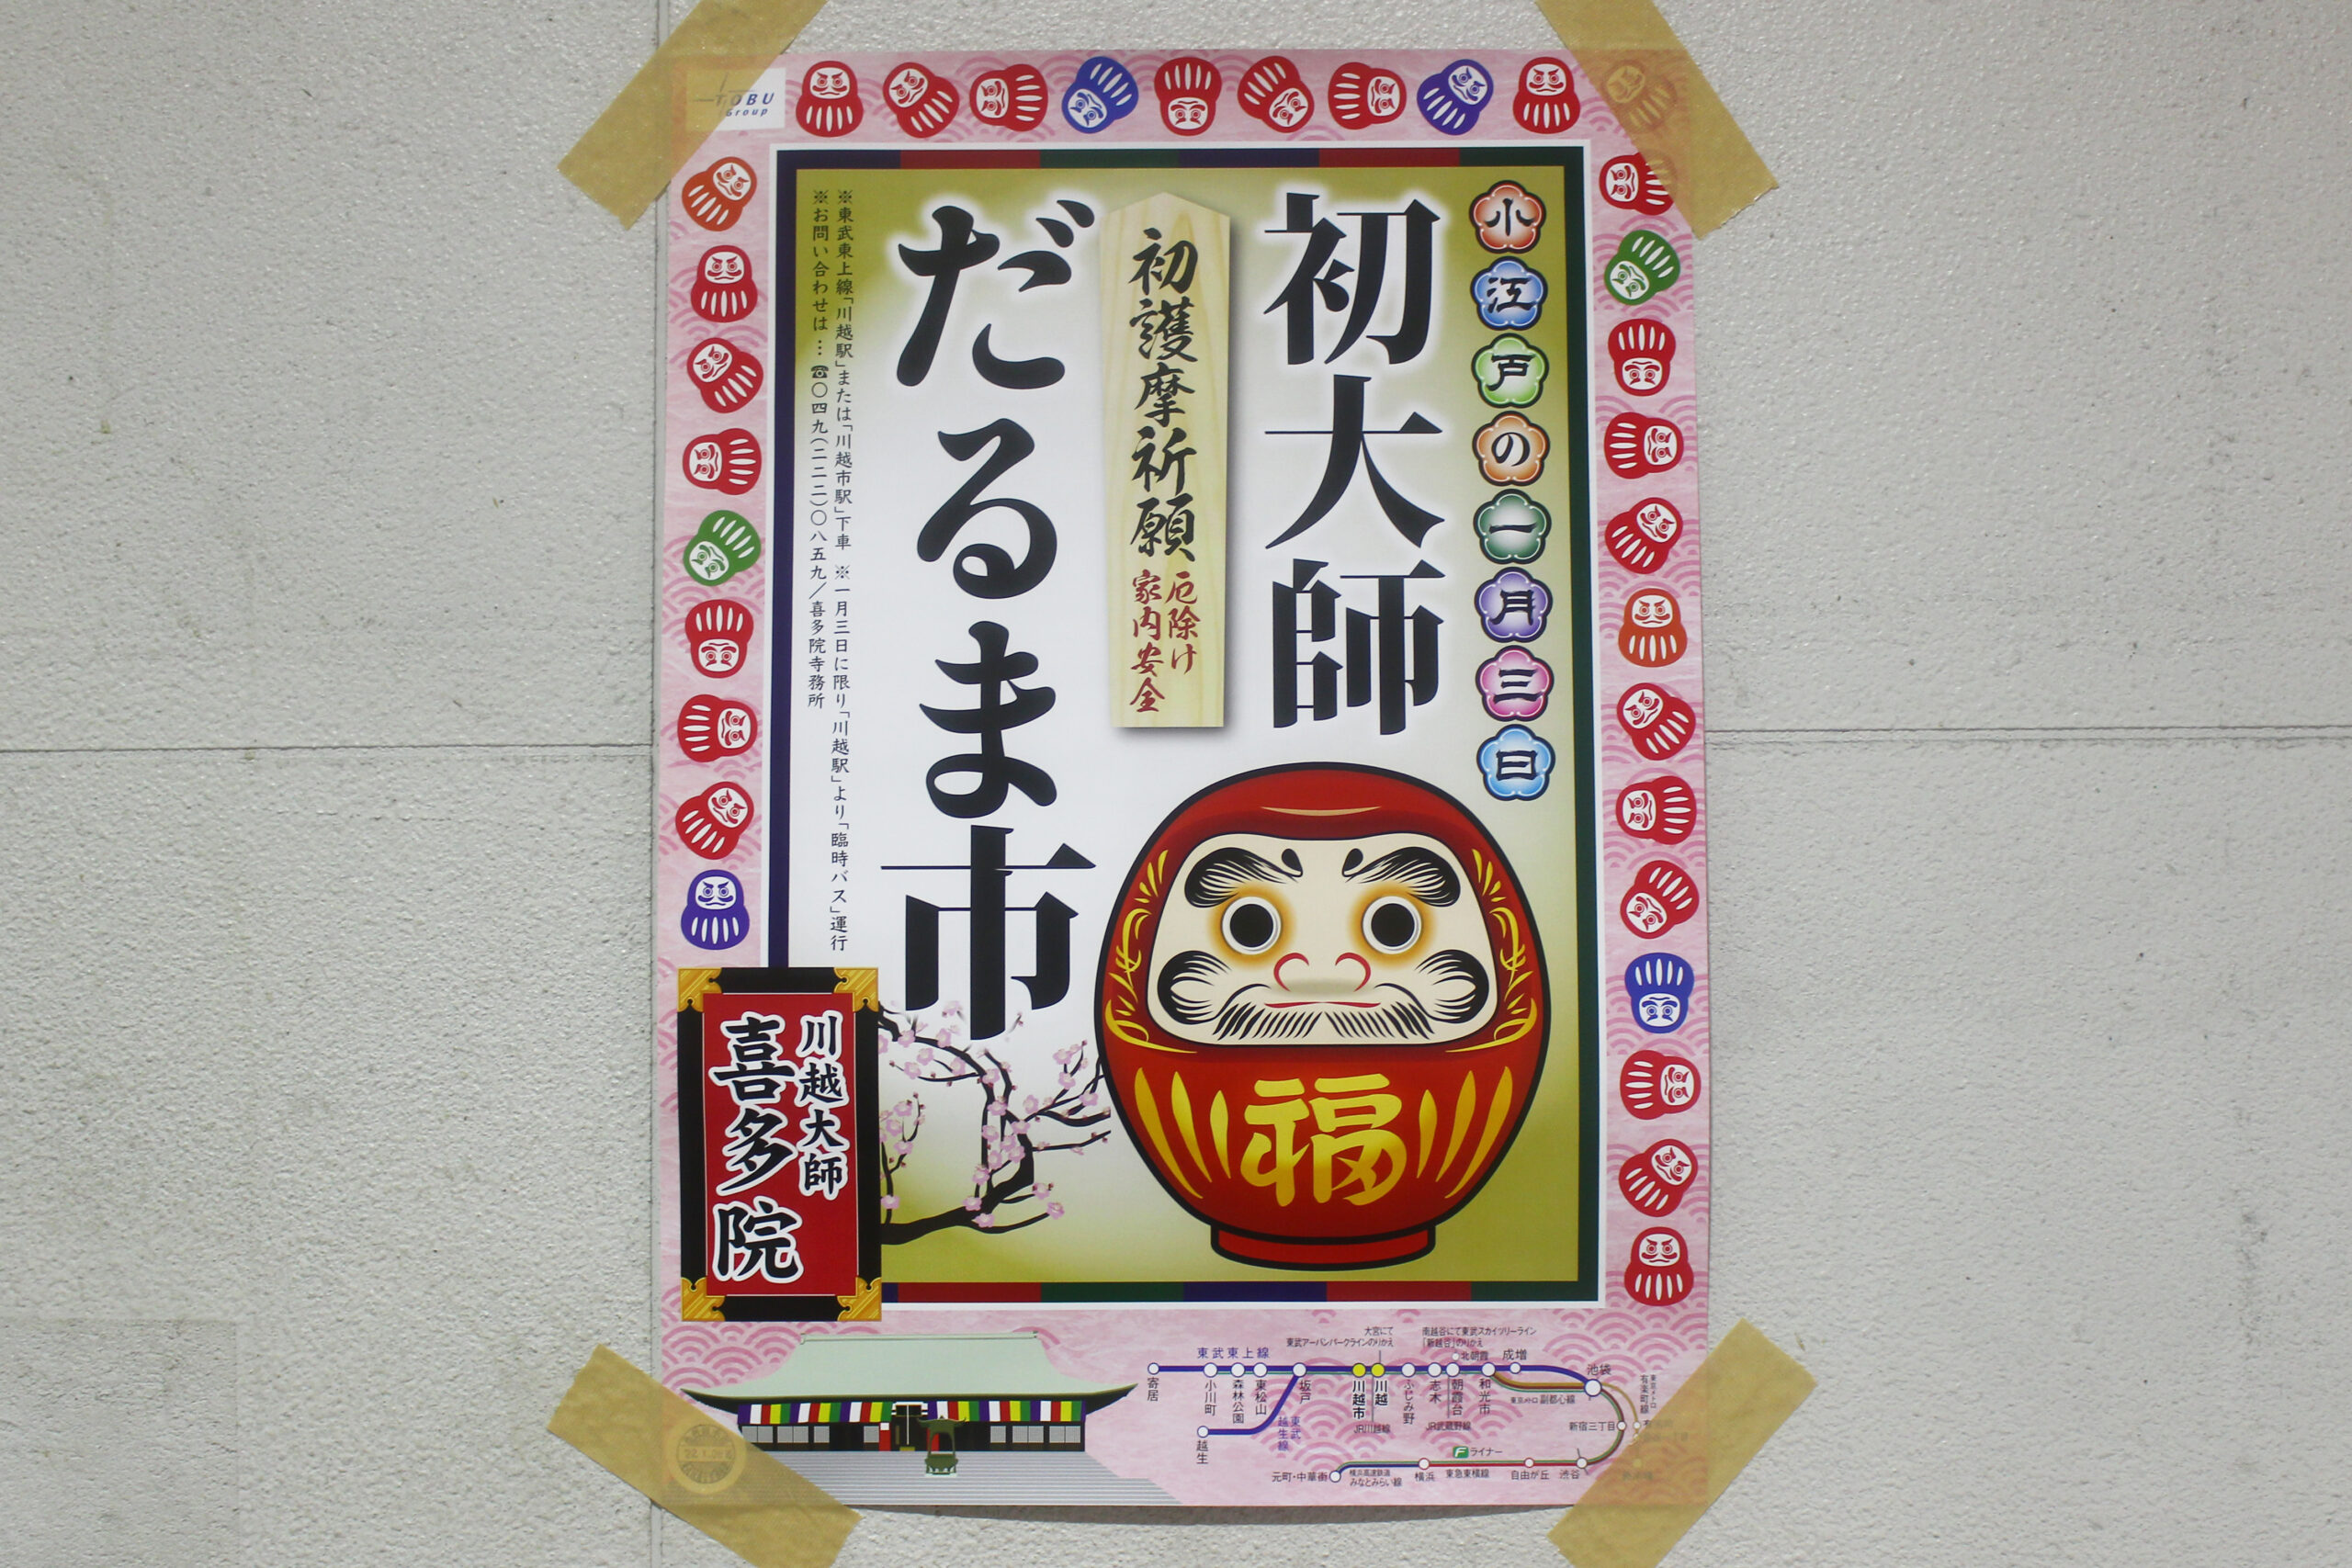 TOBU
Group
小江戸の一月三日
初大師
初護摩祈願
厄除け
家内安全
だるま市
※東武東上線「川越駅」または「川越市駅」下車 ※一月三日に限り「川越駅」より「臨時バス」運行
※お問い合わせは…☎〇四九(二二二)〇八五九/喜多院寺務所
福
川越大師
喜多院
大宮にて
東武アーバンパークラインのりかえ
南越谷にて東武スカイツリーライン
「新越谷」のりかえ
東武東上線
北朝霞
成増
池袋
寄居
小川町
森林公園
東松山
坂戸
川越市
川越
ふじみ野
志木
朝霞台
和光市
東京メトロ 副都心線
東京メトロ
有楽町線
東武
越生線
越生
JR川越線
JR武蔵野線
新宿三丁目
Fライナー
元町・中華街
横浜高速鉄道
みなとみらい線
横浜
東急東横線
自由が丘
渋谷